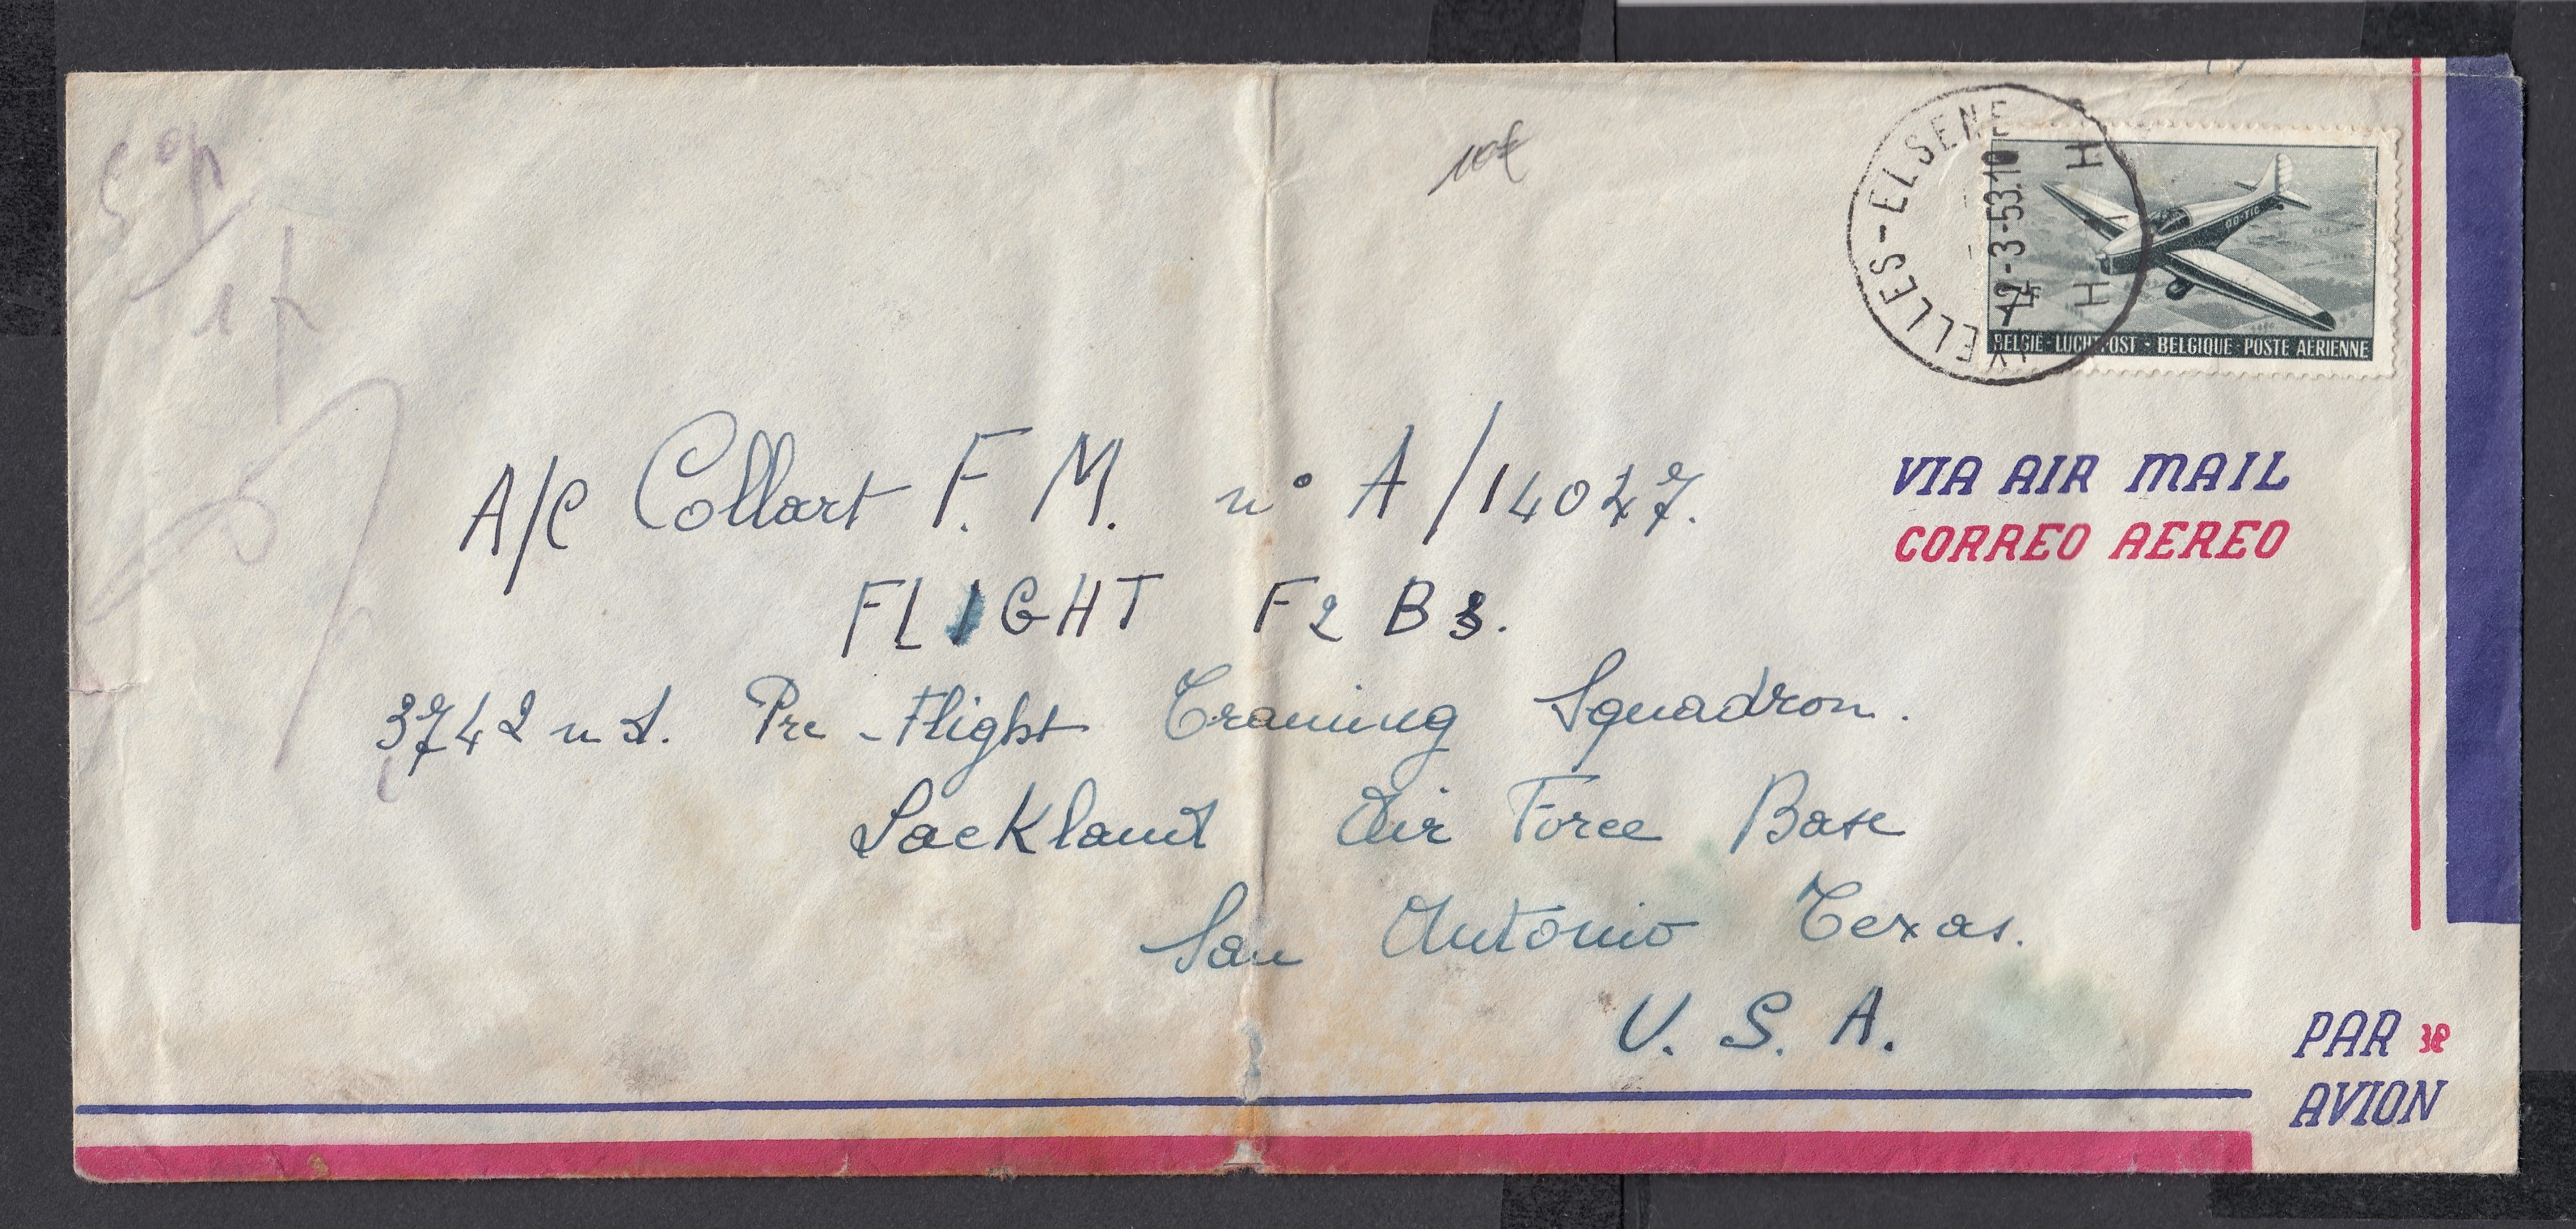 10€
IXELLES-ELSENE
12-3-53.10
H H
OO-TIC
BELGIE-LUCHTPOST - BELGIQUE-POSTE AERIENNE
VIA AIR MAIL
CORREO AEREO
A/C Collart F. M. n° A/14027.
FLIGHT F2 B3.
3742 nd. Pre-Flight Traning Squadron.
Lackland Air Force Base
San Antonio Texas.
U. S. A.
PAR
AVION